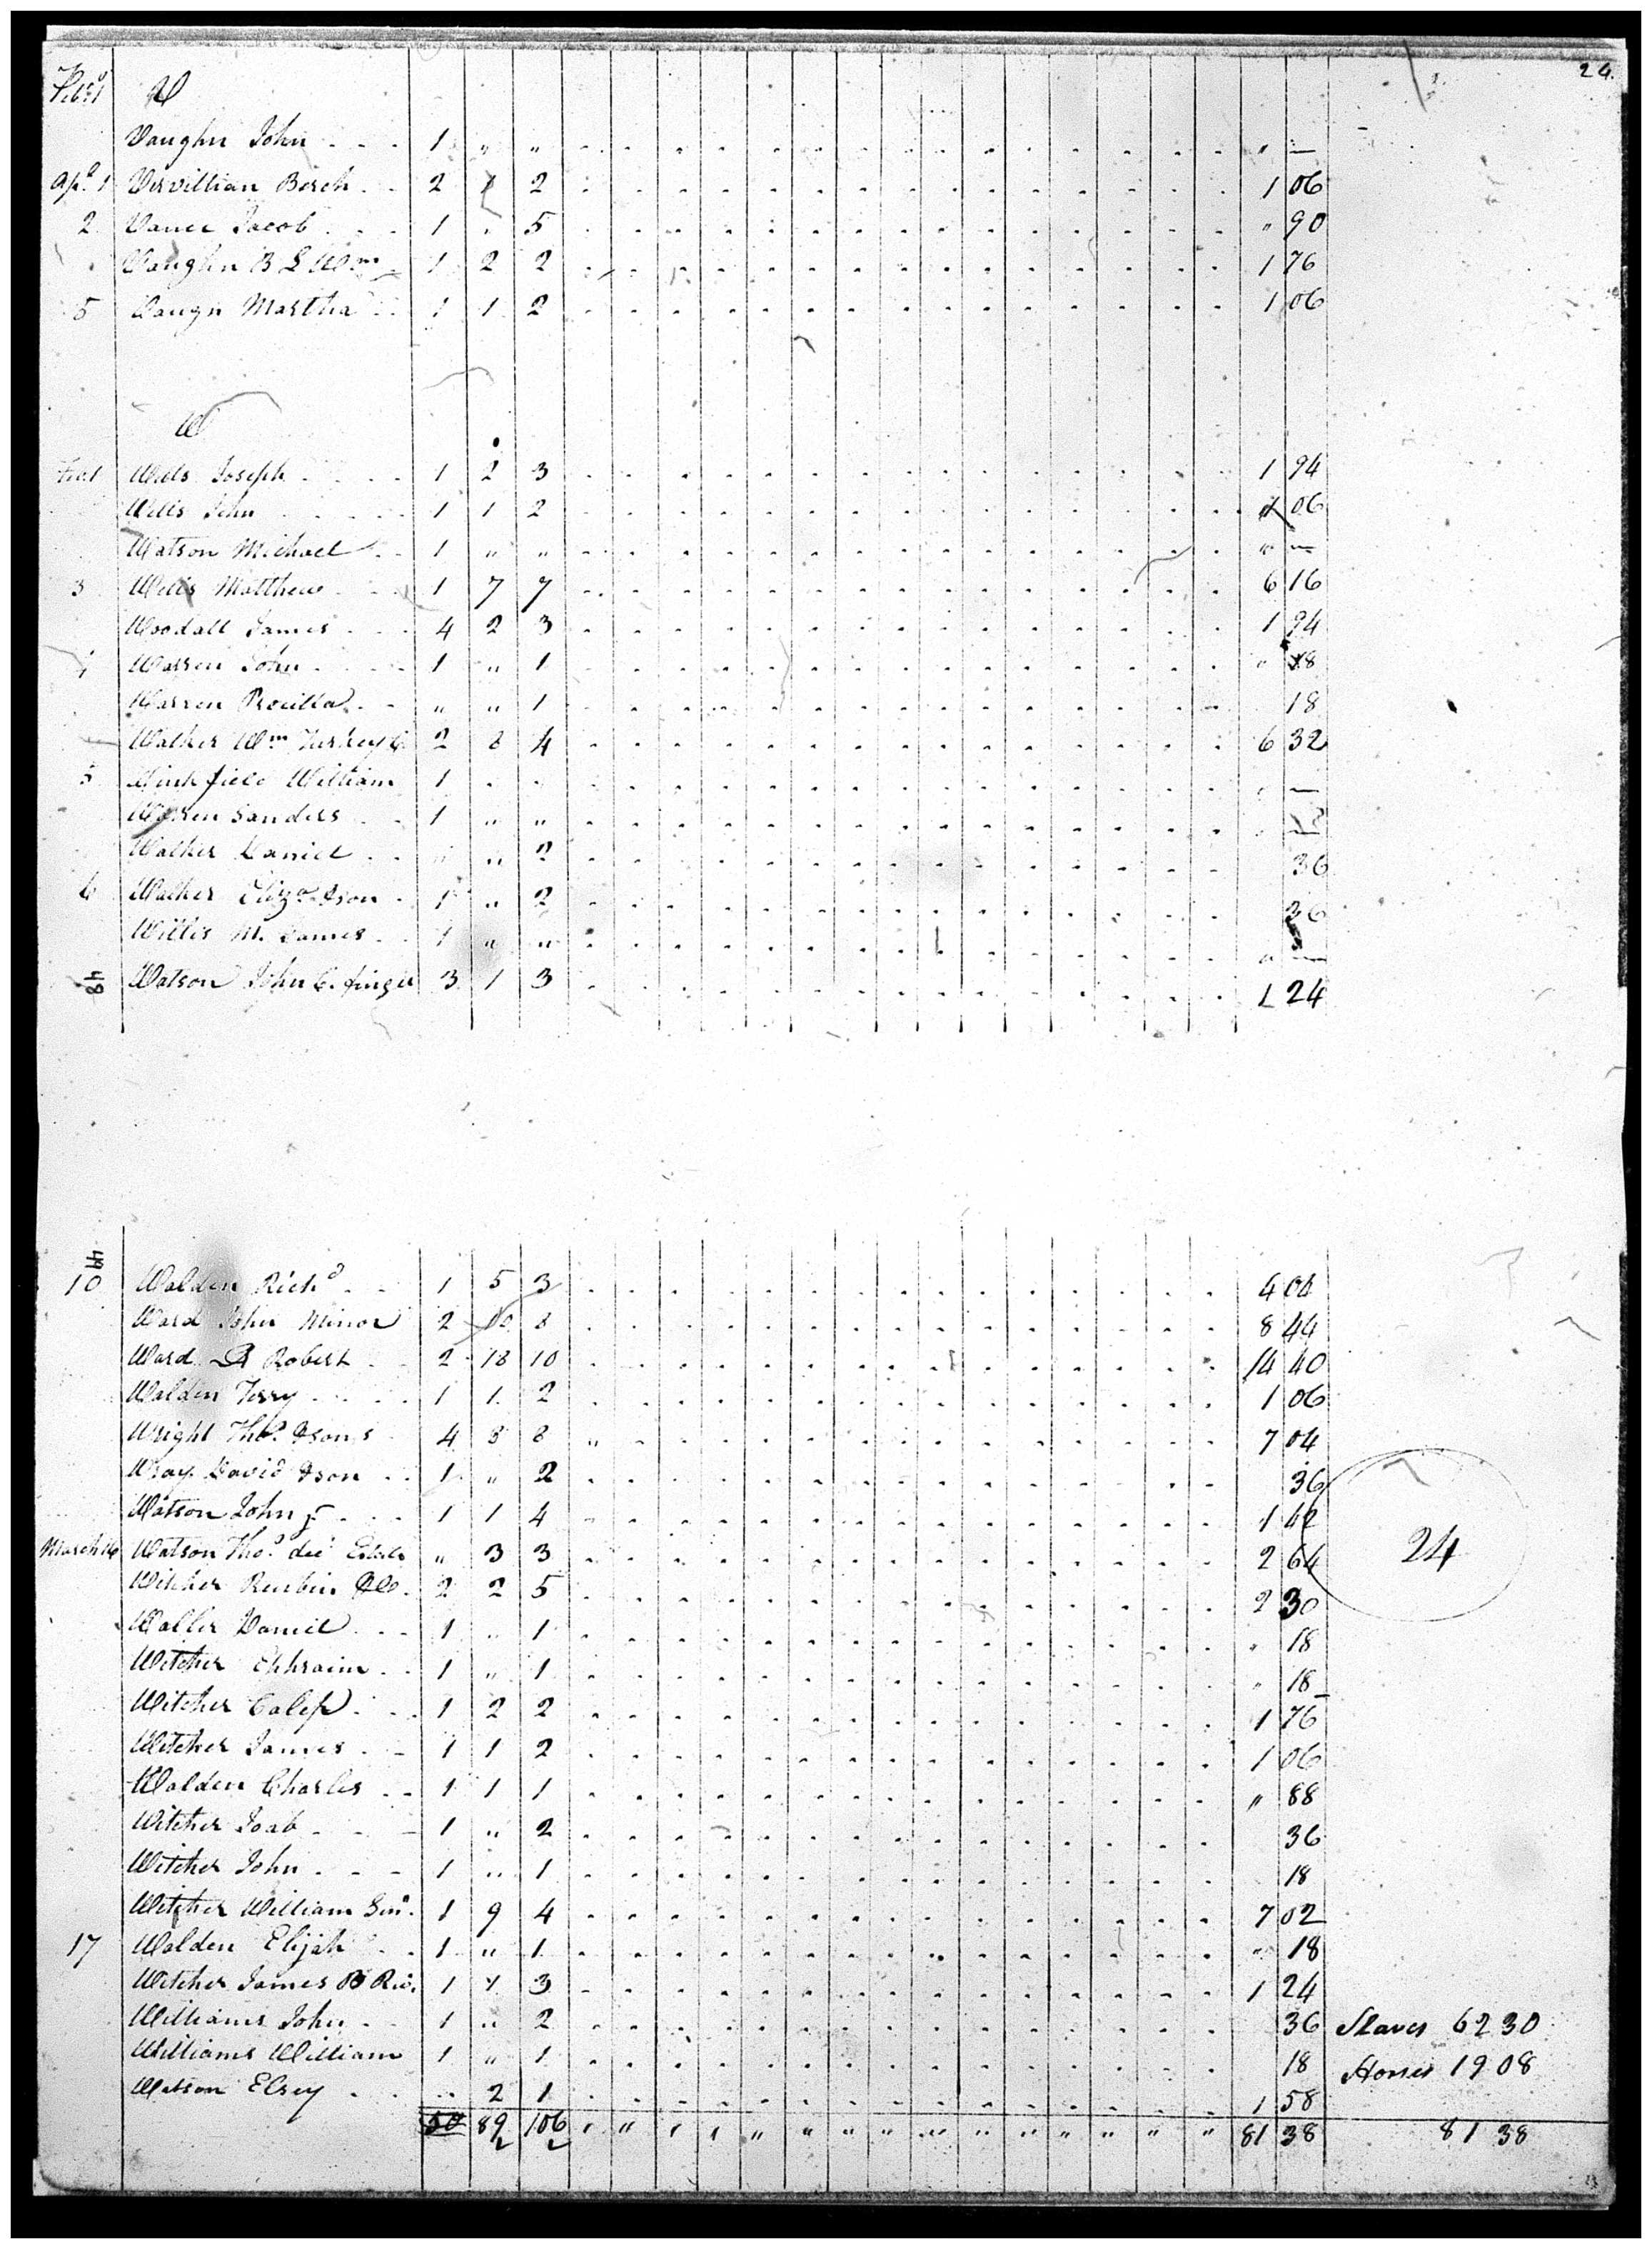 24.
Feby 1 V
Vaughn John - - - 1 " " " —
Apl. 1 Vervillian Borch - - 2 1 2 1 06
2 Vance Jacob - - - 1 " 5 " 90
Vaughn B L Wm 1 2 2 1 76
5 Vaugn Martha - - 1 1 2 1 06
W
Feb.1 Wells Joseph - - - - 1 2 3 1 94
Wells John - - - - 1 1 2 1 06
Watson Michael - - 1 " " " —
3 Wells Matthew - - 1 7 7 6 16
Woodall James - - - 4 2 3 1 94
4 Warren John - - - 1 " 1 " 18
Warren - - " " 1 18
Walker Wm Turkey C. 2 8 4 6 32
5 William 1 - - " —
Warren Sanders - - 1 " " —
Walker Daniel - - " " 2 36
6 Walker Eliza. & son - 1 " 2 36
Willis M. James - - 1 " " " —
48 Watson John C. finger 3 1 3 1 24
44
10 Walden Richd - - 1 5 3 4 04
Ward John Minor 2 10 8 8 44
Ward Robert - - 2 18 10 14 40
Walden Terry - - - - 1 1 2 1 06
Wright Tho. & sons - 4 8 8 " 7 04
Wray David & son - - 1 " 2 36
Watson John - - - 1 1 4 1 42
March 16 Watson Tho. dec Estate " 3 3 2 64
Witcher Reubin - 2 2 5 2 30
24
Waller Daniel - - - 1 " 1 " 18
Witcher Ephraim - - 1 " 1 " 18
Witcher Calep - - - 1 2 2 1 76
Witcher James - - 1 1 2 1 06
Walden Charles - - 1 1 1 " 88
Witcher Joab - - - 1 " 2 36
Witcher John - - - 1 " 1 18
Witcher William Senr. 1 9 4 7 02
17 Walden Elijah - - 1 " 1 " 18
Witcher James B Riv. 1 1 3 1 24
Williams John - - 1 " 2 36 Slaves 62 30
Williams William 1 " 1 18 Horses 19 08
Watson Elsey - - - 2 1 1 58
50 89 106 81 38 81 38